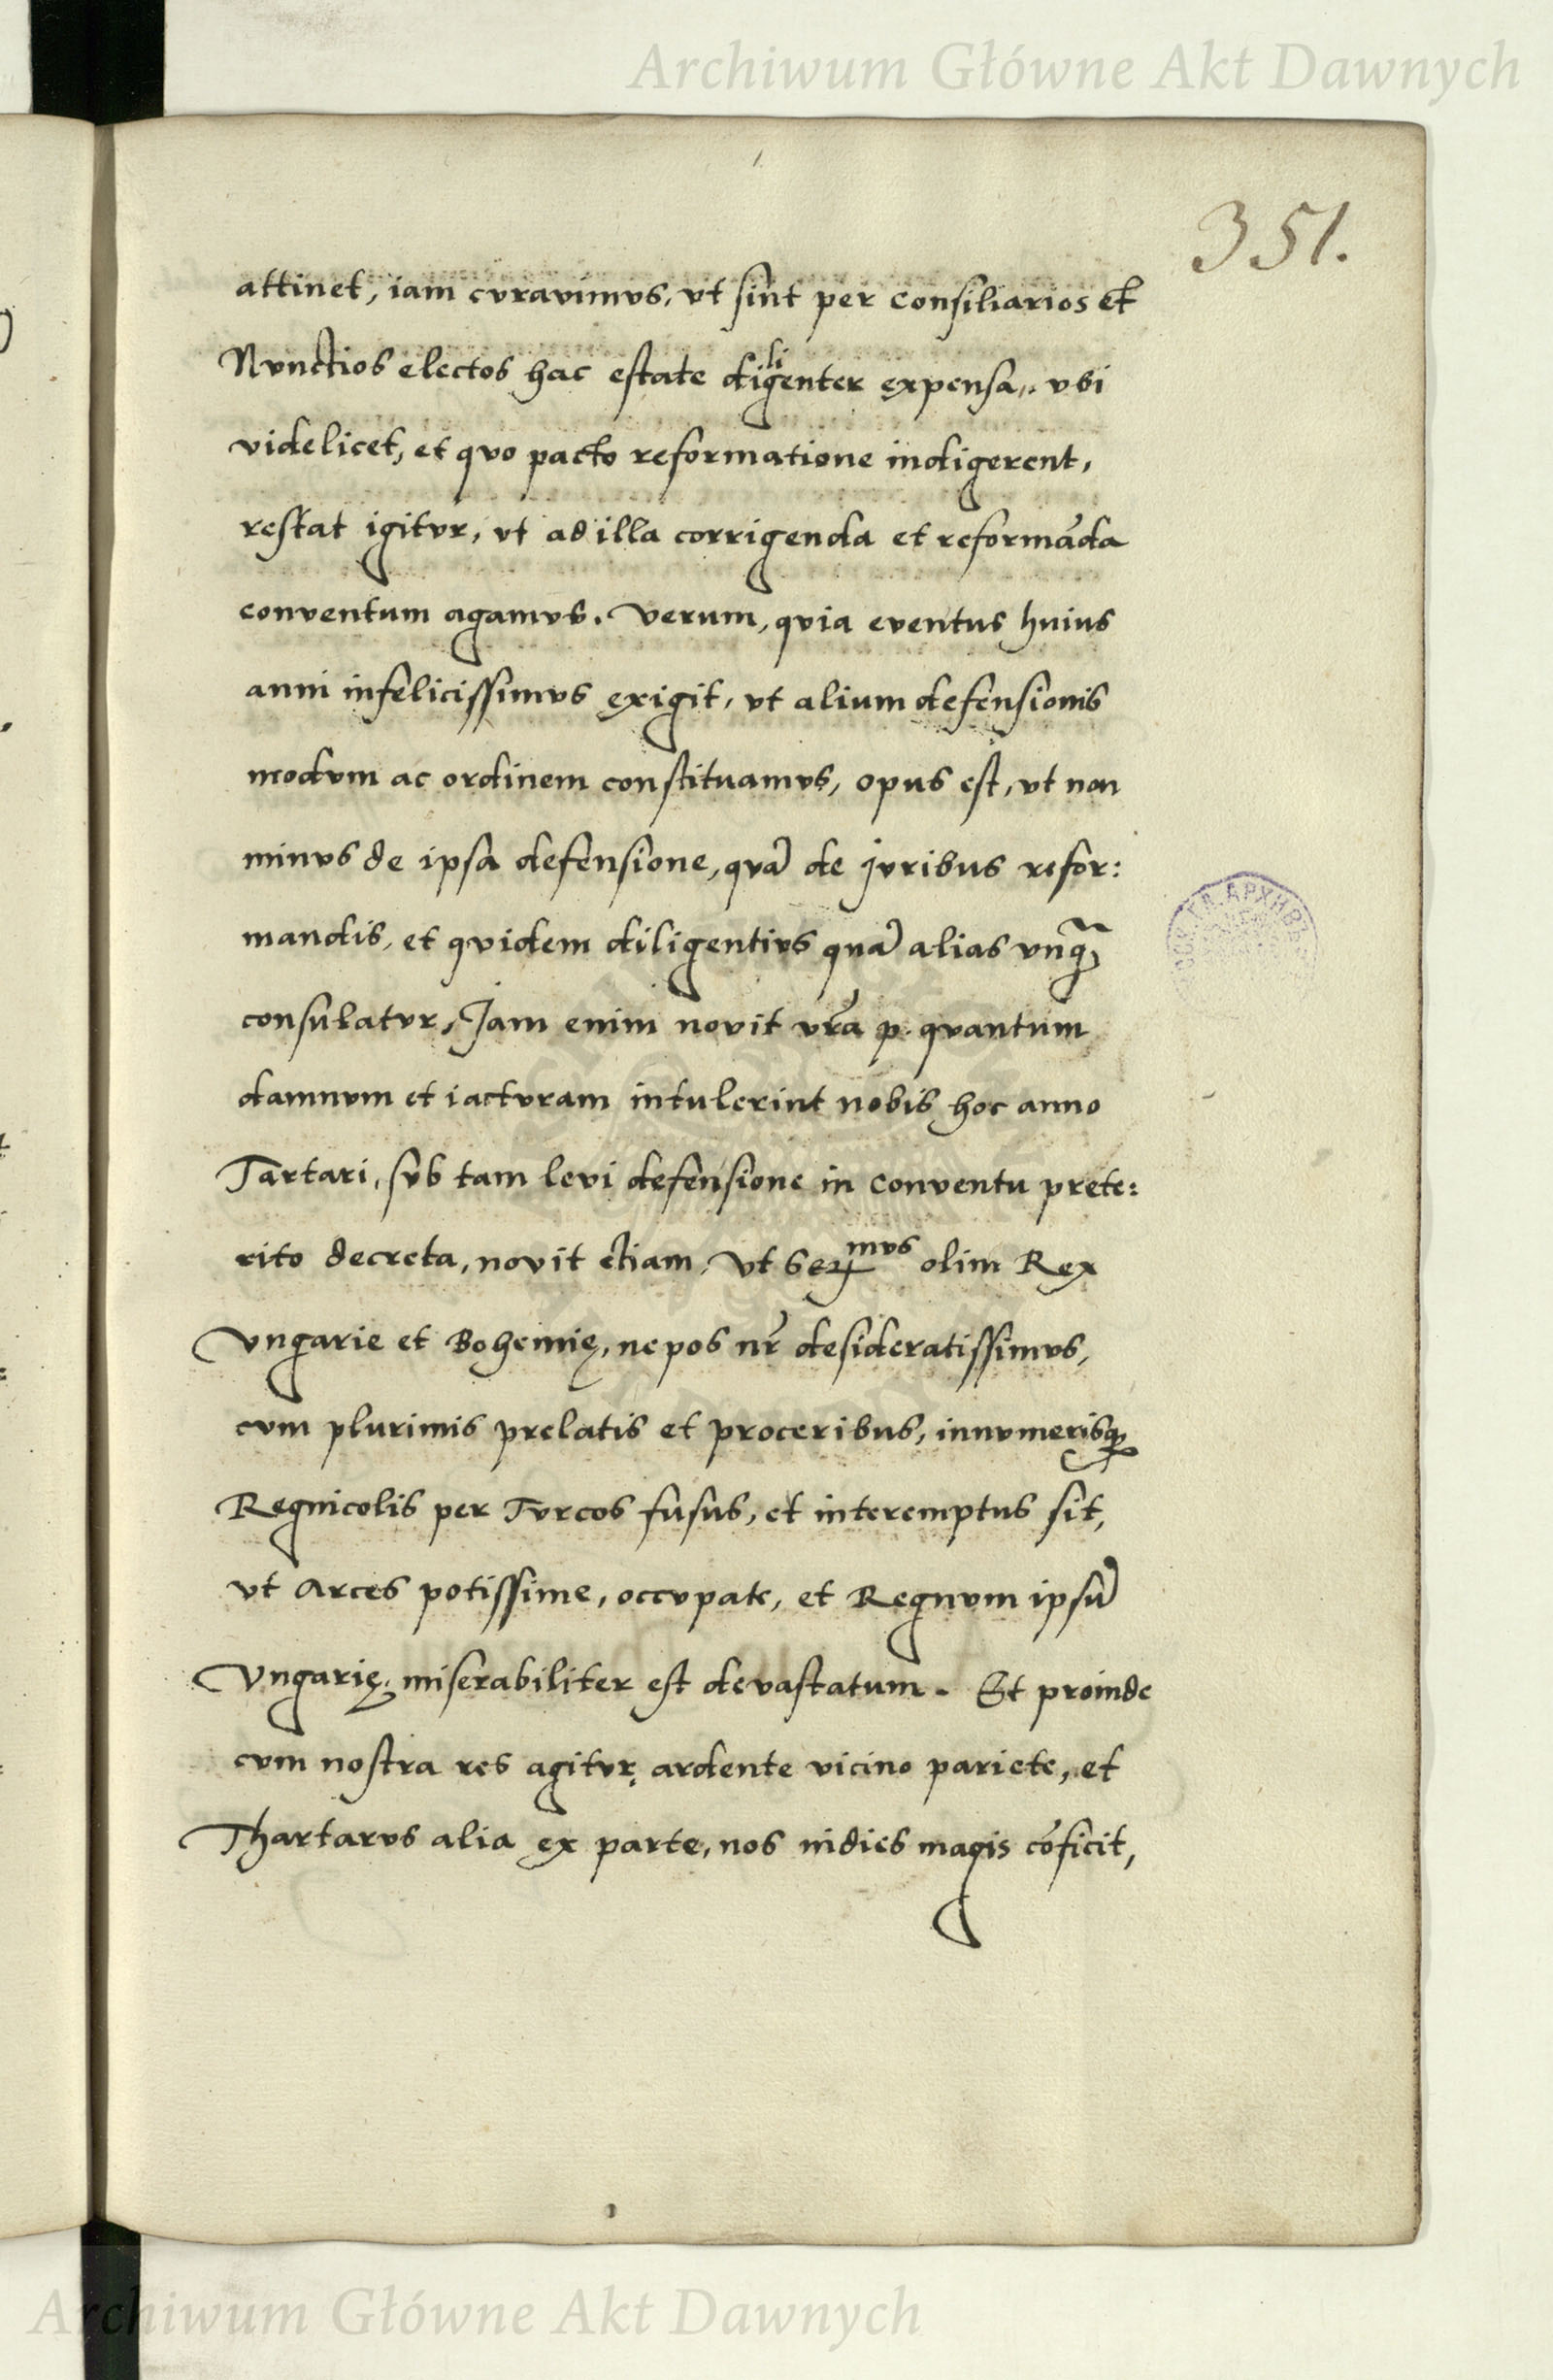 Archiwum Główne Akt Dawnych
351.
attinet, iam cvravimvs, vt sint per consiliarios et
Nvnctios electos hac estate diligenter expensa, vbi
videlicet, et qvo pacto reformatione indigerent,
restat igitvr, vt ad illa corrigenda et reformāda
conventum agamvs. Verum, qvia eventus huius
anni infelicissimvs exigit, vt alium defensionis
modvm ac ordinem constituamvs, opus est, vt non
minvs de ipsa defensione, qvā de jvribus refor:
mandis, et qvidem diligentivs quā alias vnq̄
consulatvr, Jam enim novit vr̄a p. qvantum
damnvm et iactvram intulerint nobis hoc anno
Tartari, svb tam levi defensione in conventu prete:
rito decreta, novit etiam, vt Ser mvs olim Rex
Vngarie et Bohemię, nepos nr̄ desideratissimvs,
cvm plurimis prelatis et proceribus, innvmerisq
Regnicolis per Tvrcos fusus, et interemptus sit,
vt Arces potissime, occvpate, et Regnvm ipsū
Vngarię, miserabiliter est devastatum. Et proinde
cvm nostra res agitvr, ardente vicino pariete, et
Thartarvs alia ex parte, nos indies magis cōficit,
Archiwum Główne Akt Dawnych